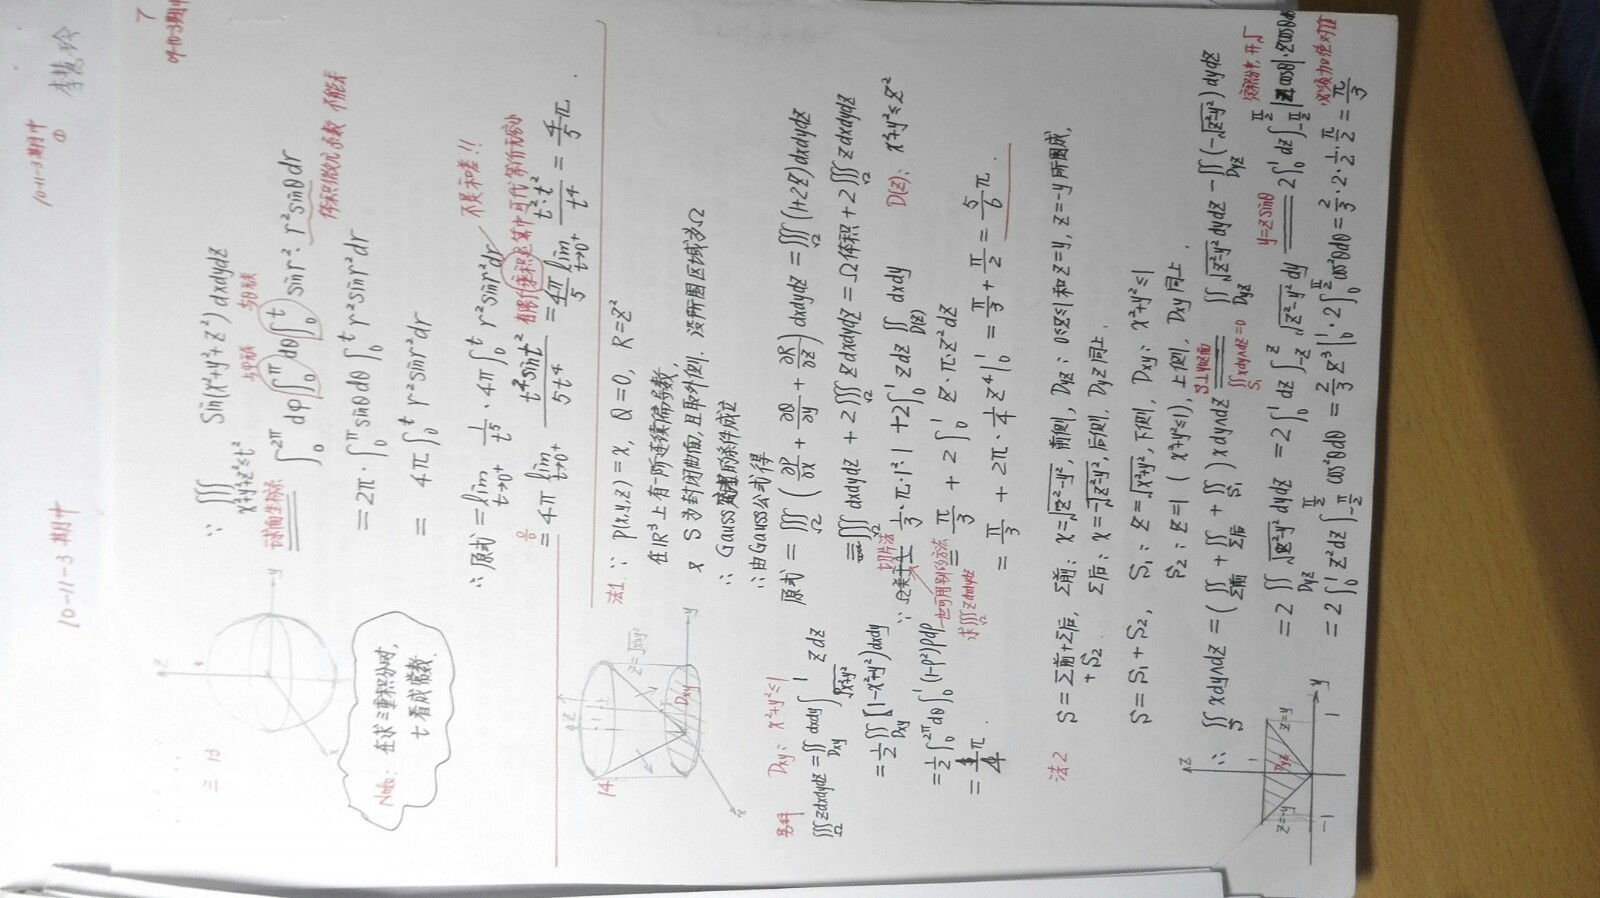 10-11-3期中
10-11-3期中
①
7
09-10-3期中
三 13
∵ ∭_{x²+y²+z²≤t²} sin(x²+y²+z²)dxdydz
球面坐标系
与φ无关 与θ无关
∫₀^{2π}dφ∫₀^π dθ∫₀^t sinr²·r²sinθdr
体积微元系数 不能丢
= 2π·∫₀^π sinθdθ∫₀^t r²sinr²dr
= 4π∫₀^t r²sinr²dr
Note: 在求三重积分时,
t看成常数.
不是和差!!
∴ 原式 = lim_{t→0⁺} 1/t⁵·4π∫₀^t r²sinr²dr
有限个乘积运算中可代等价无穷小
0/0 = 4π lim_{t→0⁺} t²sint²/5t⁴ = 4π/5 lim_{t→0⁺} t²·t²/t⁴ = 4/5π.
14
法1: ∵ P(x,y,z)=x, Q=0, R=z²
在R³上有一阶连续偏导数,
又 S为封闭曲面,且取外侧. 设所围区域为Ω
∴ Gauss 的条件成立
∴由Gauss公式得
原式 = ∭_Ω (∂P/∂x + ∂Q/∂y + ∂R/∂z)dxdydz = ∭_Ω(1+2z)dxdydz
= ∭_Ω dxdydz + 2∭_Ω zdxdydz = Ω体积 + 2∭_Ω zdxdydz
切片法
1/3·π·1²·1 + 2∫₀¹zdz∬_{D(z)}dxdy D(z): x²+y²≤z²
也可用别的方法
求∭_Ω zdxdydz
= π/3 + 2∫₀¹ z·π·z²dz
= π/3 + 2π·1/4 z⁴|₀¹ = π/3 + π/2 = 5/6π.
另解 Dxy: x²+y²≤1
∭_Ω zdxdydz = ∬_{Dxy}dxdy∫_{√(x²+y²)}^1 zdz
= 1/2∬_{Dxy}[1-(x²+y²)]dxdy
= 1/2∫₀^{2π}dθ∫₀¹(1-ρ²)ρdρ
= 1/4 π.
法2 S=Σ前+Σ后, Σ前: x=√(z²-y²), 前侧, Dyz: 0≤z≤1和z=y, z=-y所围成,
+S₂. Σ后: x=-√(z²-y²), 后侧, Dyz同上.
S=S₁+S₂, S₁: z=√(x²+y²), 下侧, Dxy: x²+y²≤1
S₂: z=1 (x²+y²≤1), 上侧, Dxy同上.
∴ ∬_S xdy∧dz = (∬_{Σ前}+∬_{Σ后}+∬_{S₁})xdy∧dz = ∬_{Dyz}√(z²-y²)dydz - ∬_{Dyz}(-√(z²-y²))dydz
S⊥yz面
∬_{S₁}xdy∧dz=0
定积分中, 开√
必须加绝对值
= 2∬_{Dyz}√(z²-y²)dydz = 2∫₀¹dz∫_{-z}^z√(z²-y²)dy
y=zsinθ
2∫₀¹dz∫_{-π/2}^{π/2} z|cosθ|·zcosθdθ
= 2∫₀¹z²dz∫_{-π/2}^{π/2}cos²θdθ = 2/3 z³|₀¹·2∫₀^{π/2}cos²θdθ = 2/3·2·1/2·π/2 = π/3